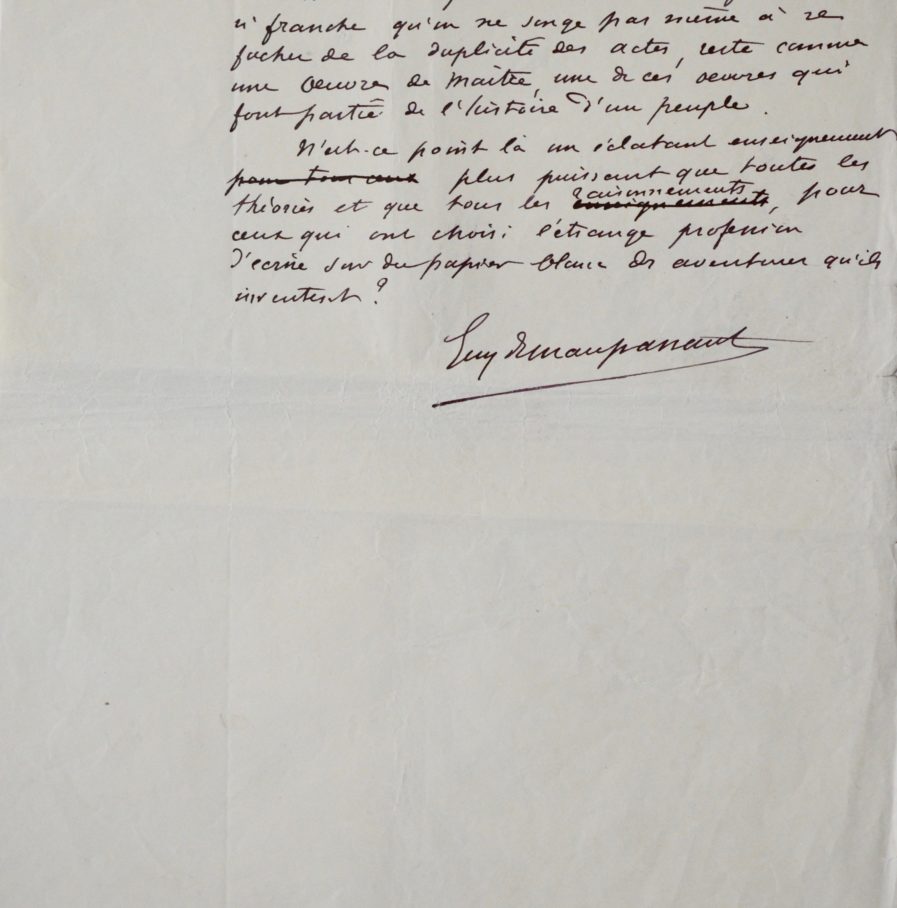 si franche qu'on ne songe pas même à se
facher de la duplicité des actes, reste comme
une Oeuvre de Maître, une de ces oeuvres qui
font partie de l'histoire d'un peuple.
N'est-ce point là un éclatant enseignement
pour tous ceux plus puissant que toutes les
théories et que tous les raisonnements enseignements, pour
ceux qui ont choisi l'étrange profession
d'écrire sur du papier blanc des aventures qu'ils
inventent ?
Guy de Maupassant